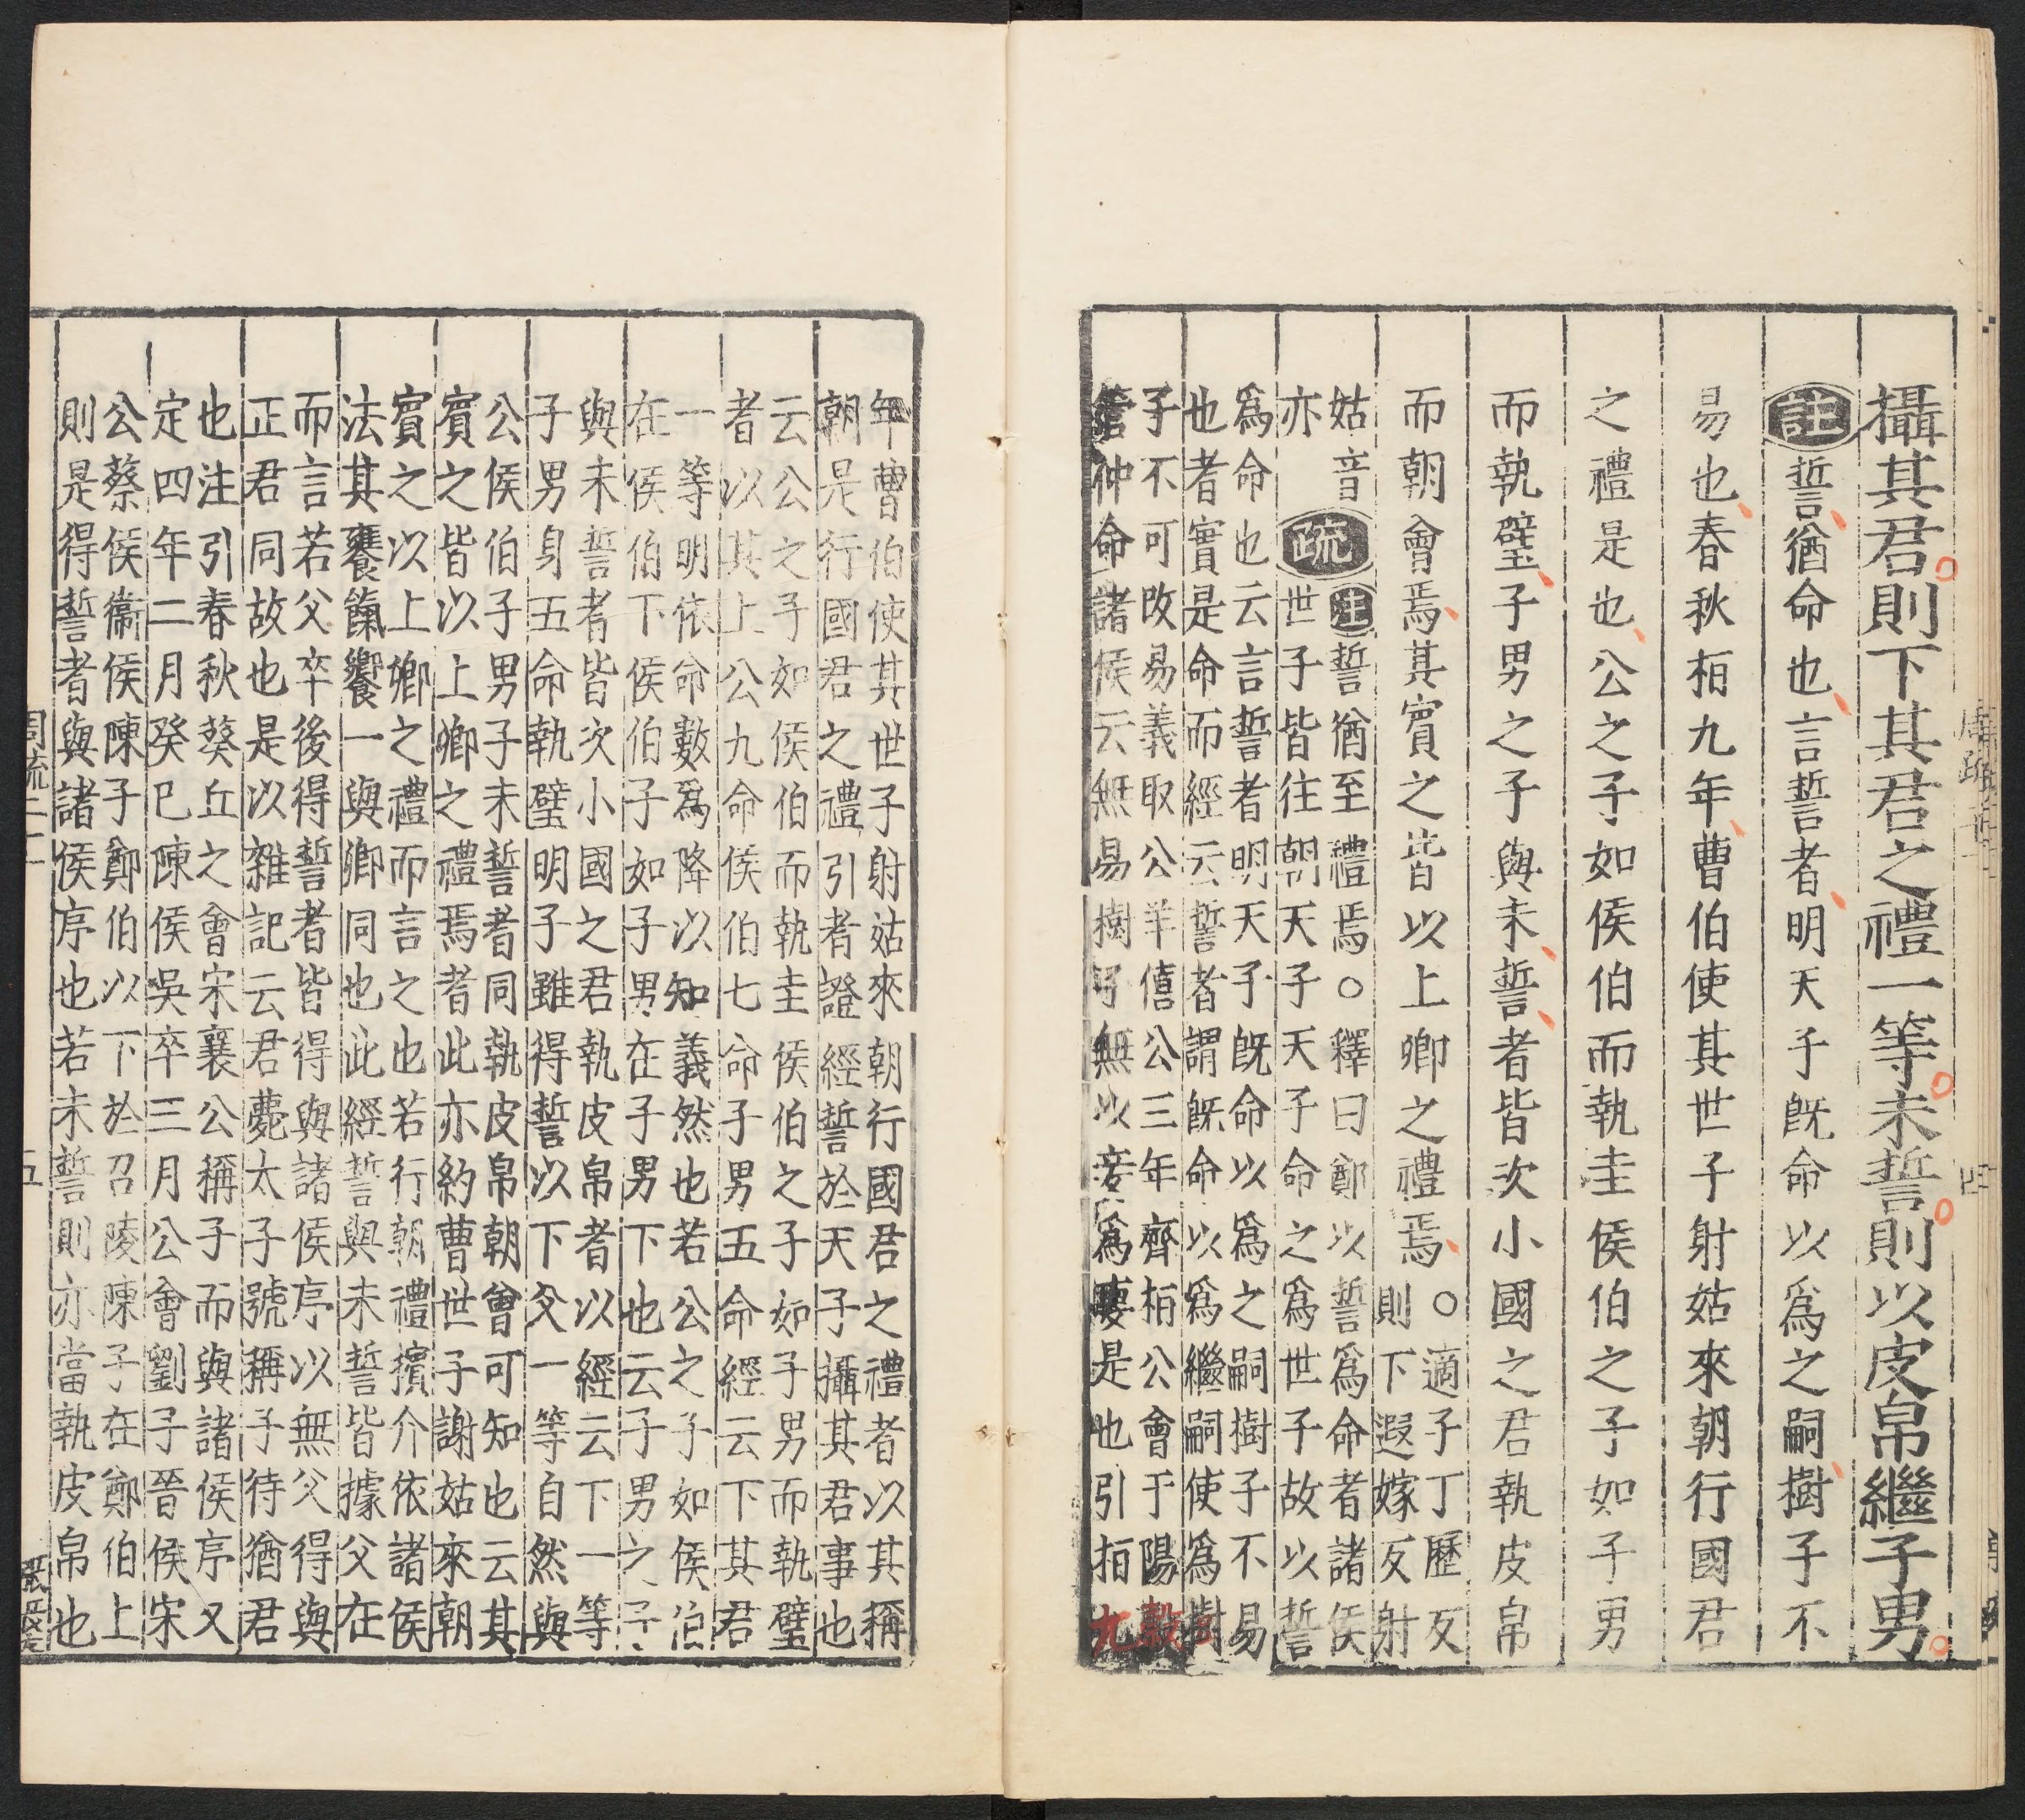 攝其君則下其君之禮一等未誓則以皮帛繼子男
註誓猶命也言誓者明天子旣命以爲之嗣樹子不
易也春秋桓九年曹伯使其世子射姑來朝行國君
之禮是也公之子如侯伯而執圭侯伯之子如子男
而執璧子男之子與未誓者皆次小國之君執皮帛
而朝會焉其賓之皆以上卿之禮焉○適子丁歷反
則下遐嫁反射
姑音疏注誓猶至禮焉○釋曰鄭以誓爲命者諸侯
亦世子皆往朝天子天子命之爲世子故以誓
爲命也云言誓者明天子旣命以爲之嗣樹子不易
也者實是命而經云誓者謂旣命以爲繼嗣使爲樹
子不可改易義取公羊僖公三年齊桓公會于陽穀
管仲命諸侯云無易樹子無以妾爲妻是也引桓九
年曹伯使其世子射姑來朝行國君之禮者以其稱
朝是行國君之禮引者證經誓於天子攝其君事也
云公之子如侯伯而執圭侯伯之子如子男而執璧
者以其上公九命侯伯七命子男五命經云下其君
一等明依命數爲降以知義然也若公之子如侯伯
在侯伯下侯伯子如子男在子男下也云子男之子
與未誓者皆次小國之君執皮帛者以經云下一等
子男身五命執璧明子雖得誓以下父一等自然與
公侯伯子男子未誓者同執皮帛朝會可知也云其
賓之皆以上卿之禮焉者此亦約曹世子謝姑來朝
賓之以上卿之禮而言之也若行朝禮擯介依諸侯
法其饔餼饗一與卿同也此經誓與未誓皆據父在
而言若父卒後得誓者皆得與諸侯序以無父得與
正君同故也是以雜記云君薨太子號稱子待猶君
也注引春秋葵丘之會宋襄公稱子而與諸侯序又
定四年二月癸巳陳侯吳卒三月公會劉子晉侯宋
公蔡侯衞侯陳子鄭伯以下於召陵陳子在鄭伯上
則是得誓者與諸侯序也若未誓則亦當執皮帛也
周疏二十一
五